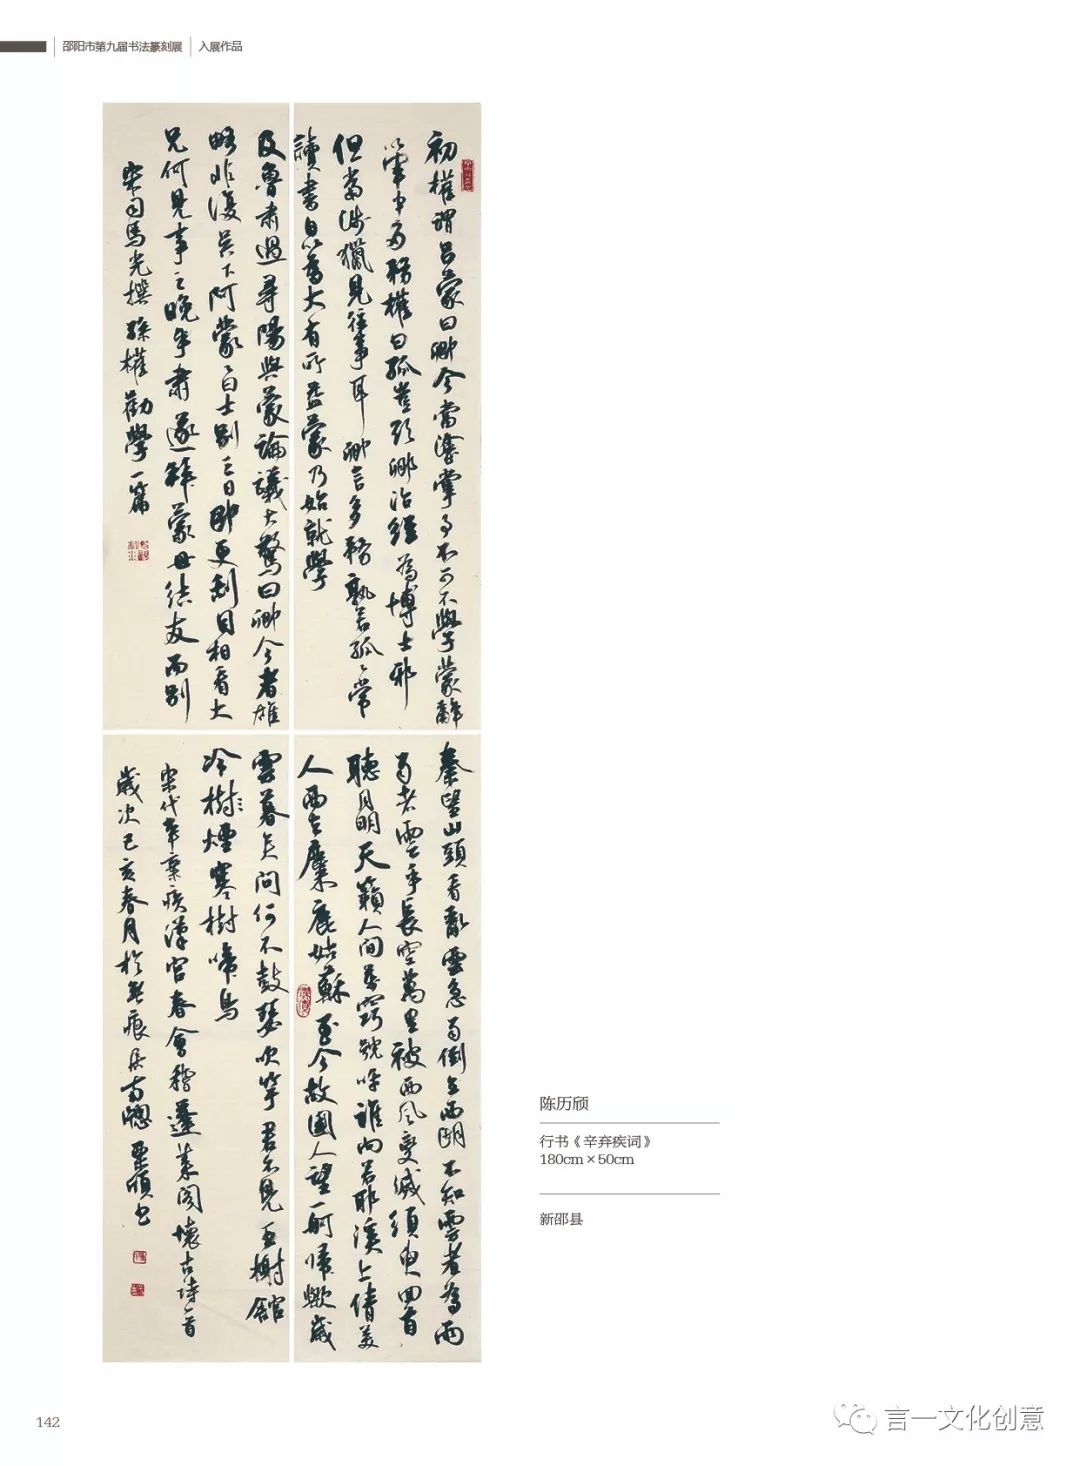 邵阳市第九届书法篆刻展 入展作品
初權謂呂蒙曰卿今當塗掌事不可不學蒙辭
以軍中多務權曰孤豈欲卿治經為博士邪
但當涉獵見往事耳卿言多務孰若孤、常
讀書自以為大有所益蒙乃始就學
及魯肅過尋陽與蒙論議大驚曰卿今者雄
略非復吳下阿蒙、曰士別三日即更刮目相看大
兄何見事之晚乎肅遂拜蒙母結友而別
宋司馬光撰孫權勸學一篇
秦望山頭看亂雲急雨倒立西湖不知雲者為雨
雨者雲乎長空萬里被西風變滅須臾回首
聽月明天籟人間萬竅號呼誰向若耶溪上倩美
人西去麋鹿姑蘇至今故國人望一舸歸歟歲
雲暮矣問何不鼓瑟吹竽君不見王榭館
冷樹煙寒樹啼烏
宋代辛棄疾漢宮春會稽蓬萊閣懷古詩一首
歲次己亥春月於無痕居南窗歷頎書
陈历颀
行书《辛弃疾词》
180cm×50cm
新邵县
142
言一文化创意